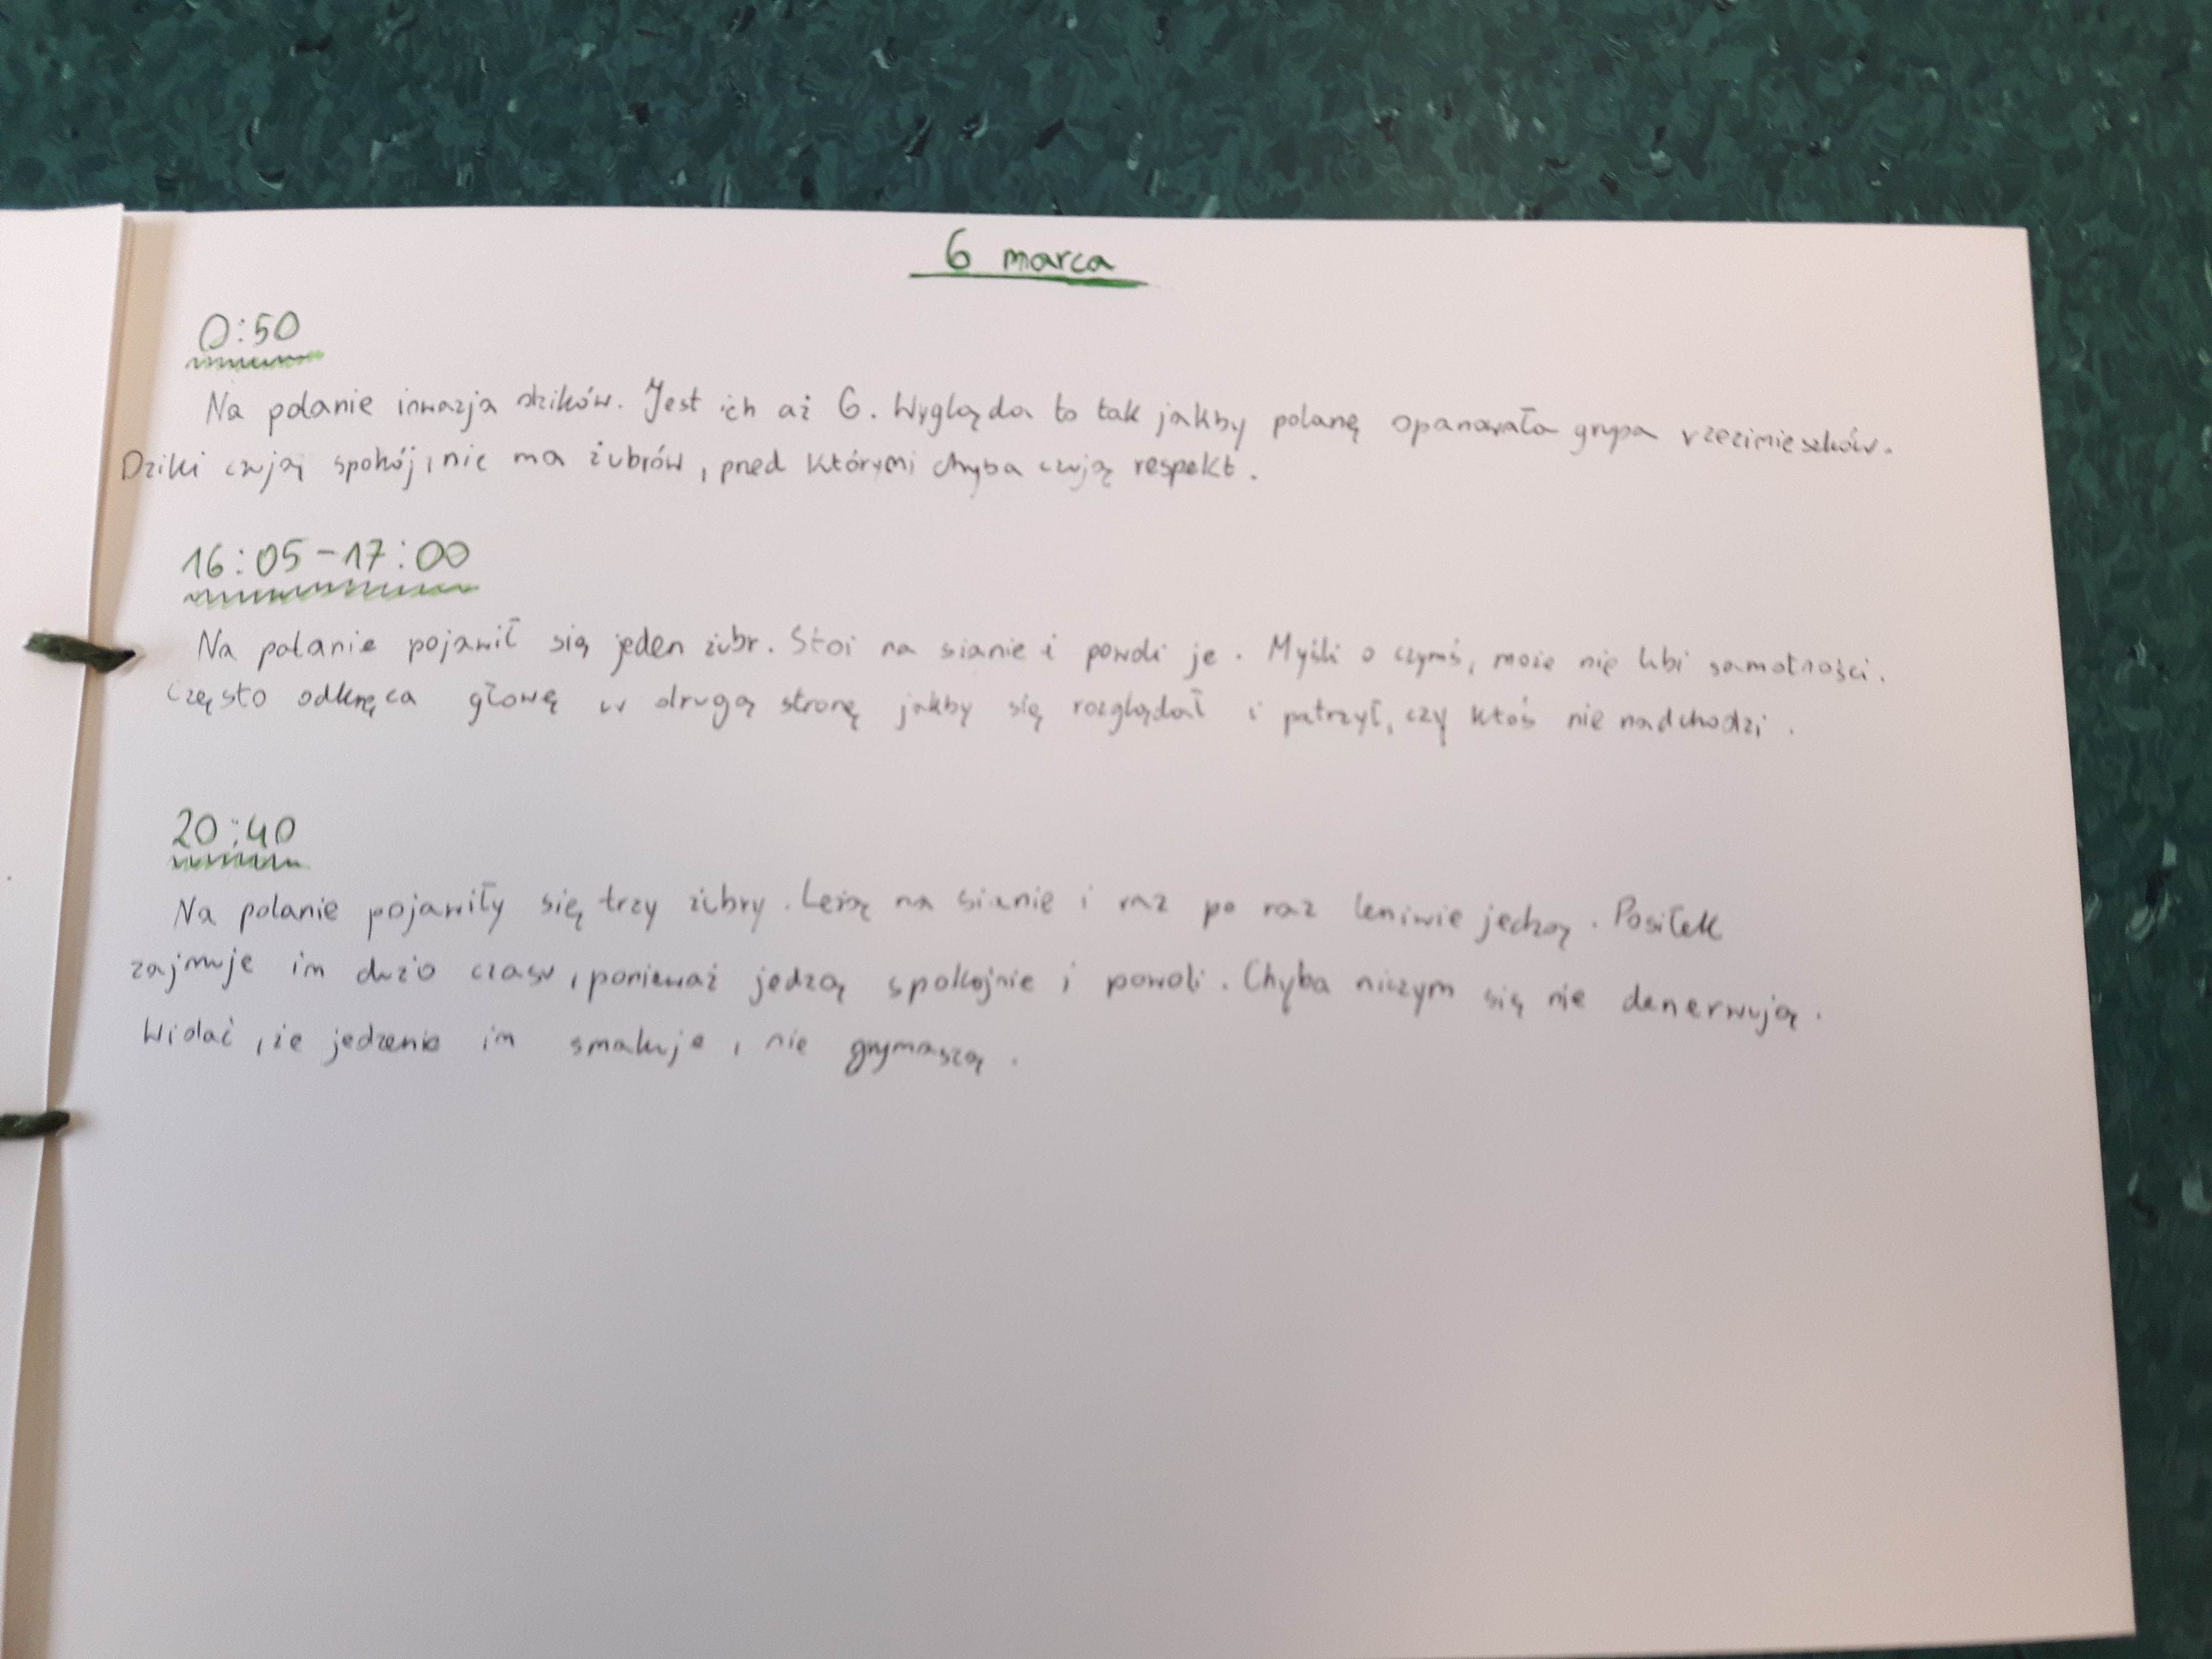 6 marca
0:50
Na polanie inwazja dzików. Jest ich aż 6. Wygląda to tak jakby polanę opanowała grupa rzezimieszków.
Dziki czują spokój, nie ma żubrów, przed którymi chyba czują respekt.
16:05-17:00
Na polanie pojawił się jeden żubr. Stoi na sianie i powoli je. Myśli o czymś, może nie lubi samotności.
Często odkręca głowę w drugą stronę jakby się rozglądał i patrzył, czy ktoś nie nadchodzi.
20:40
Na polanie pojawiły się trzy żubry. Leżą na sianie i raz po raz leniwie jedzą. Posiłek
zajmuje im dużo czasu, ponieważ jedzą spokojnie i powoli. Chyba niczym się nie denerwują.
Widać, że jedzenie im smakuje, nie grymaszą.